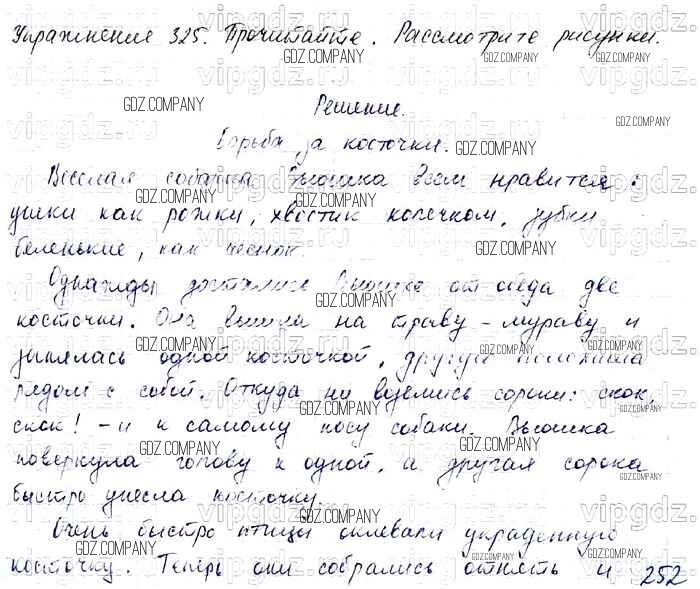 Упражнение 325. Прочитайте. Рассмотрите рисунки.
Решение.
Борьба за косточки.
Веселая собачка Вьюшка всем нравится:
ушки как рожки, хвостик колечком, зубки
беленькие, как чеснок.
Однажды достались Вьюшке от обеда две
косточки. Она вышла на траву-мураву и
занялась одной косточкой, другую положила
рядом с собой. Откуда ни взялись сороки: скок,
скок! - и к самому носу собаки. Вьюшка
повернула голову к одной, а другая сорока
быстро унесла косточку.
Очень быстро птицы склевали украденную
косточку. Теперь они собрались отнять и
252
GDZ.COMPANY
vipgdz.ru